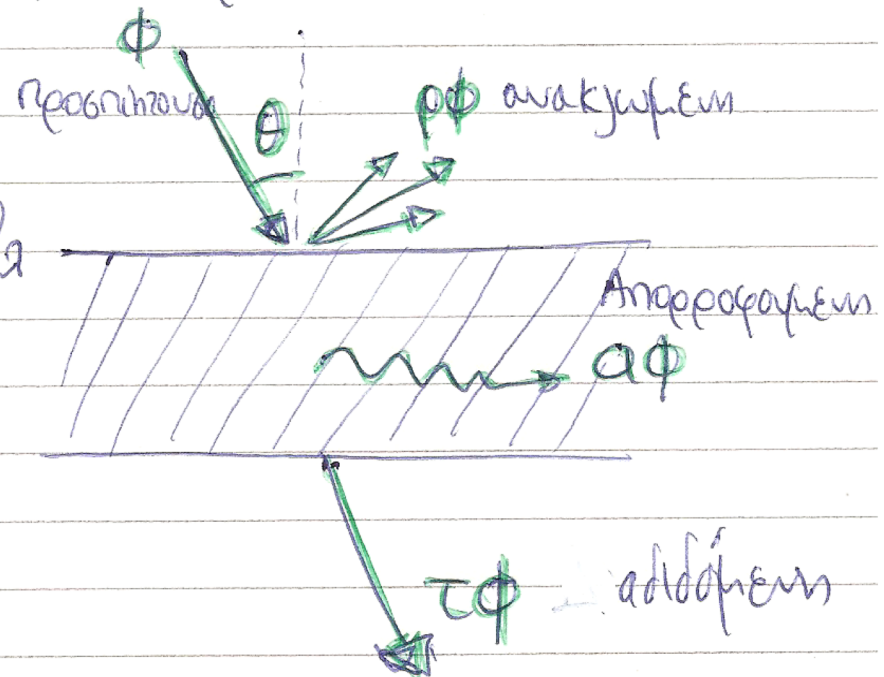 Φ
προσπίπτουσα
θ
ρΦ ανακλωμένη
Απορροφομενη
αΦ
τΦ
αδιδόμενη